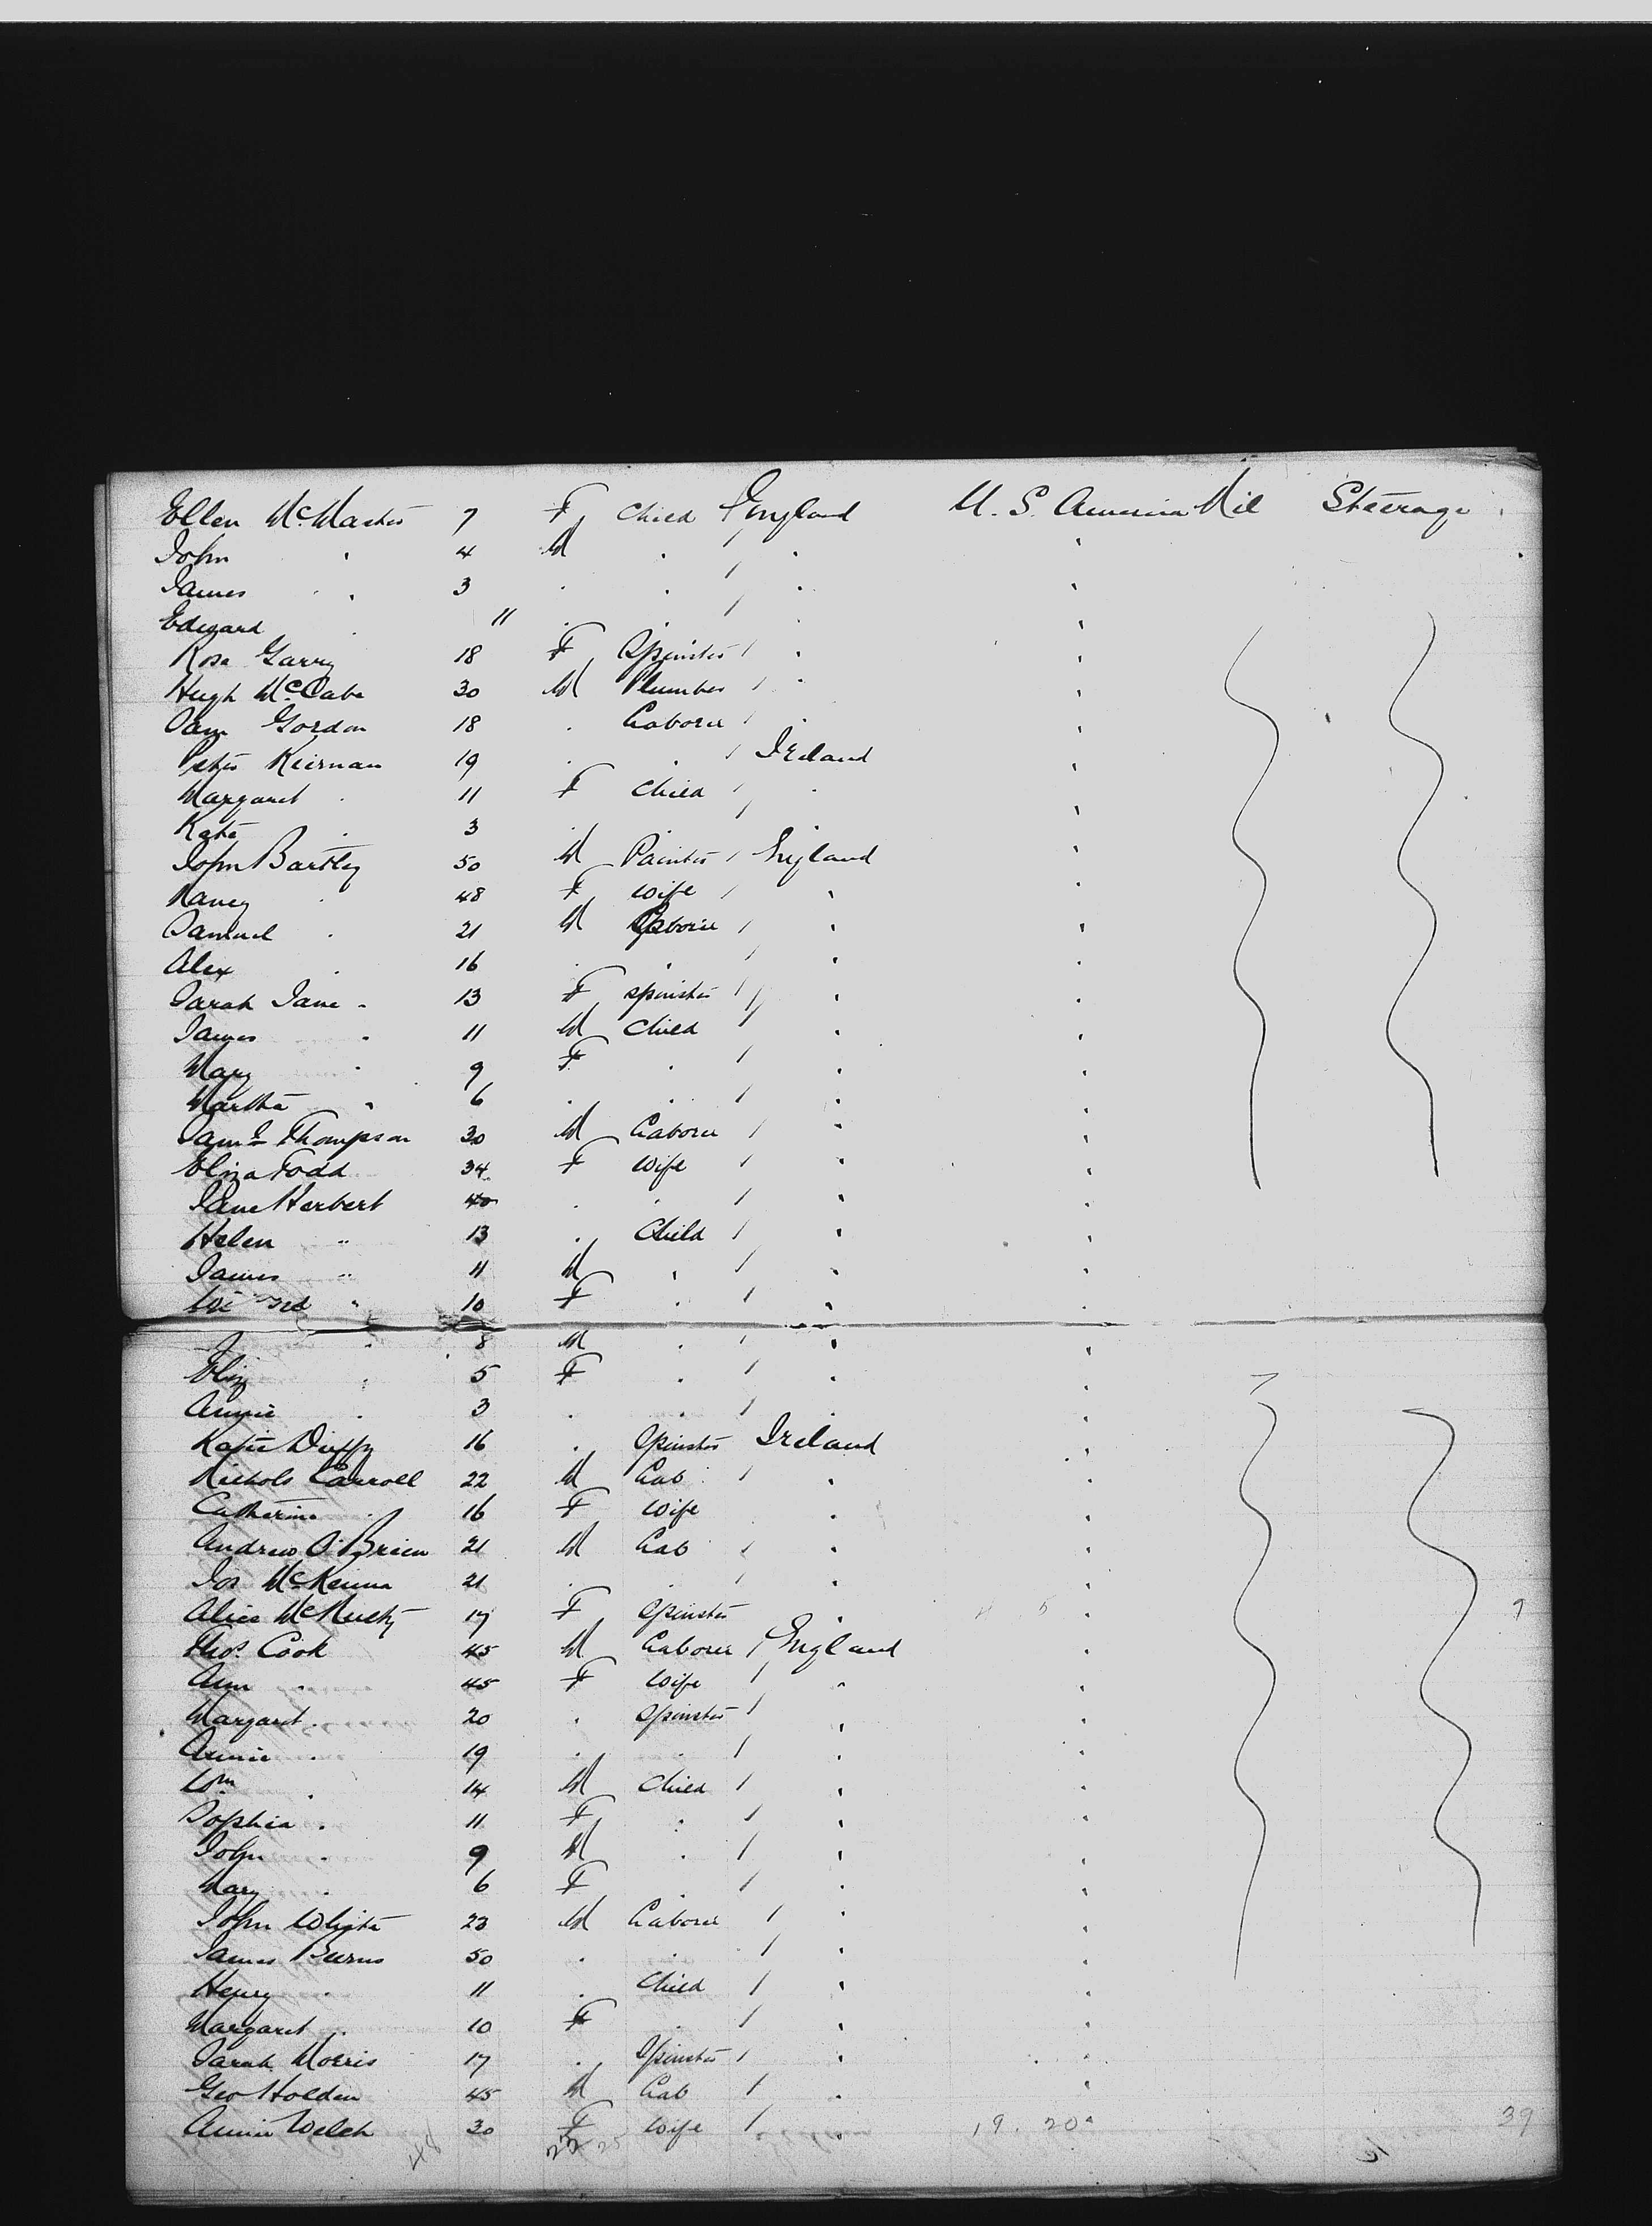 Ellen McMaster 7 F Child / England U. S. America Nil Steerage
John " 4 M " / " "
James " 3 " " / " "
Edward " 11 " " / " "
Rose Garry 18 F Spinster / " "
Hugh McCabe 30 M Plumber / " "
Sam Gordon 18 " Laborer / " "
Peter Kiernan 19 " " / Ireland "
Margaret " 11 F Child / " "
Kate " 3 " " / " "
John Bartley 50 M Painter / England "
Nancy " 48 F Wife / " "
Samuel " 21 M Laborer / " "
Alex " 16 " " / " "
Sarah Jane " 13 F Spinster / " "
James " 11 M Child / " "
Mary " 9 F " / " "
Martha " 6 " " / " "
Saml Thompson 30 M Laborer / " "
Eliza Todd 34 F Wife / " "
Jane Herbert 40 " " / " "
Helen " 13 " Child / " "
James " 11 M " / " "
" 10 F " / " "
" 8 M " / " "
Eliz " 5 F " / " "
Annie " 3 " " / " "
Katie Duffy 16 " Spinster Ireland "
Nichols Carroll 22 M Lab / " "
Catherine " 16 F Wife " "
Andrew O'Brien 21 M Lab / " "
Jos McKenna 21 " " / " "
Alice McNulty 17 F Spinster " "
Thos. Cook 45 M Laborer / England "
Ann " 45 F Wife / " "
Margaret " 20 " Spinster / " "
Annie " 19 " " / " "
Wm " 14 M Child / " "
Sophia " 11 F " / " "
John " 9 M " / " "
Mary " 6 F " / " "
John White 23 M Laborer / " "
James Burns 50 " " / " "
Henry " 11 " Child / " "
Margaret " 10 F " / " "
Sarah Morris 17 " Spinster / " "
Geo Holden 45 M Lab / " "
Annie Welch 30 F Wife / " 19. 20 " 39
48 22 25